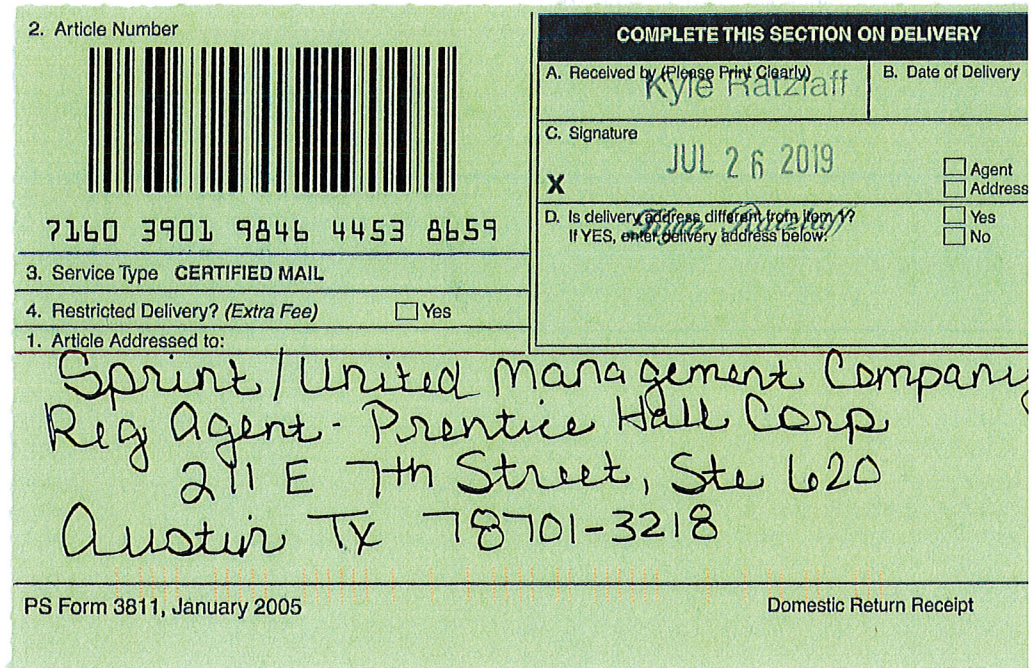 2. Article Number
7160 3901 9846 4453 8659
3. Service Type CERTIFIED MAIL
4. Restricted Delivery? (Extra Fee) Yes
1. Article Addressed to:
Sprint/United Management Company
Reg Agent - Prentice Hall Corp
211 E 7th Street, Ste 620
Austin TX 78701-3218
COMPLETE THIS SECTION ON DELIVERY
A. Received by (Please Print Clearly)
Kyle Ratzlaff
B. Date of Delivery
C. Signature
JUL 26 2019
X
Agent
Address
D. Is delivery address different from item 1?
If YES, enter delivery address below:
Yes
No
PS Form 3811, January 2005
Domestic Return Receipt